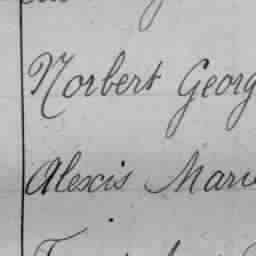 Norbert Georg
Alexis Marie